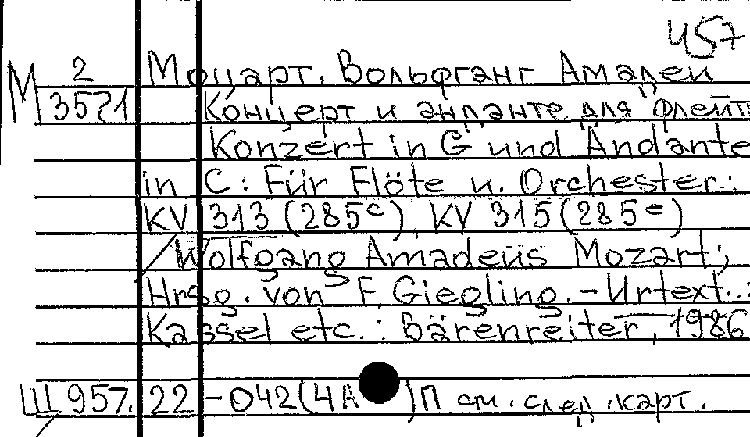 457
М 2 Моцарт, Вольфганг Амадей
3571 Концерт и анданте для флейт
Konzert in G und Andante
in C: Für Flöte u. Orchester:
KV 313 (285c), KV 315 (285e)
/Wolfgang Amadeus Mozart;
Hrsg. von F. Giegling. - Urtext. :
Kassel etc.: Bärenreiter, 1986
Щ 957. 22 - 042 (4А )П см. след. карт.